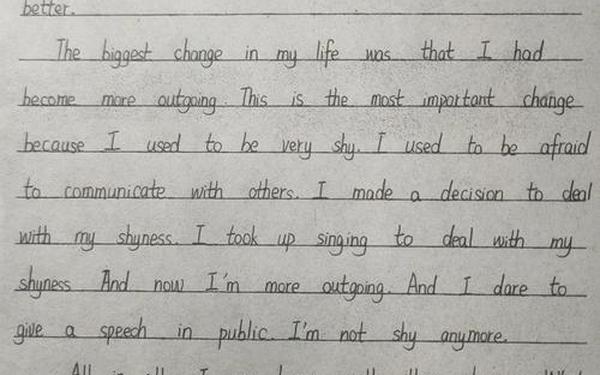 better.
The biggest change in my life was that I had
become more outgoing. This is the most important change
because I used to be very shy. I used to be afraid
to communicate with others. I made a decision to deal
with my shyness. I took up singing to deal with my
shyness And now I'm more outgoing. And I dare to
give a speech in public. I'm not shy anymore.
All